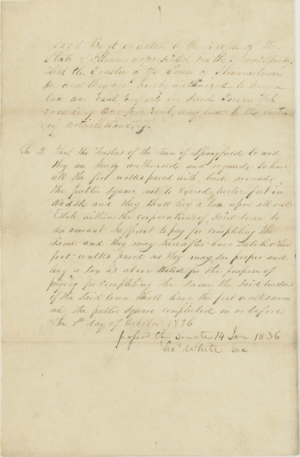 Sec 1 Be it enacted by the People of the
State of Illinois represented in the General Assembly
That the Trustees of the Town of Shawneetown
be and they are hereby authorised to levy a
tax on real property in said Town not
exceeding two per cent, any law to the contrary
notwithstanding.
Sec 2 That the Trustees of the town of Springfield be and
they are hereby authorised and required to have
all the foot walks paved with brick around
the public square not to exceed twelve feet in
width and they shall levy a tax upon all real
Estate within the corporation of said town to
an amount sufficient to pay for completing the
same and they may hereafter have such other
foot walks paved as they may see proper and
levy a tax as above stated for the purpose of
paying for completing the same the said trustees
of the said town shall have the foot walks around
the public square completed on or before
the 1st day of October 1836
passed the Senate 14 Jan 1836
Leo. White Sec